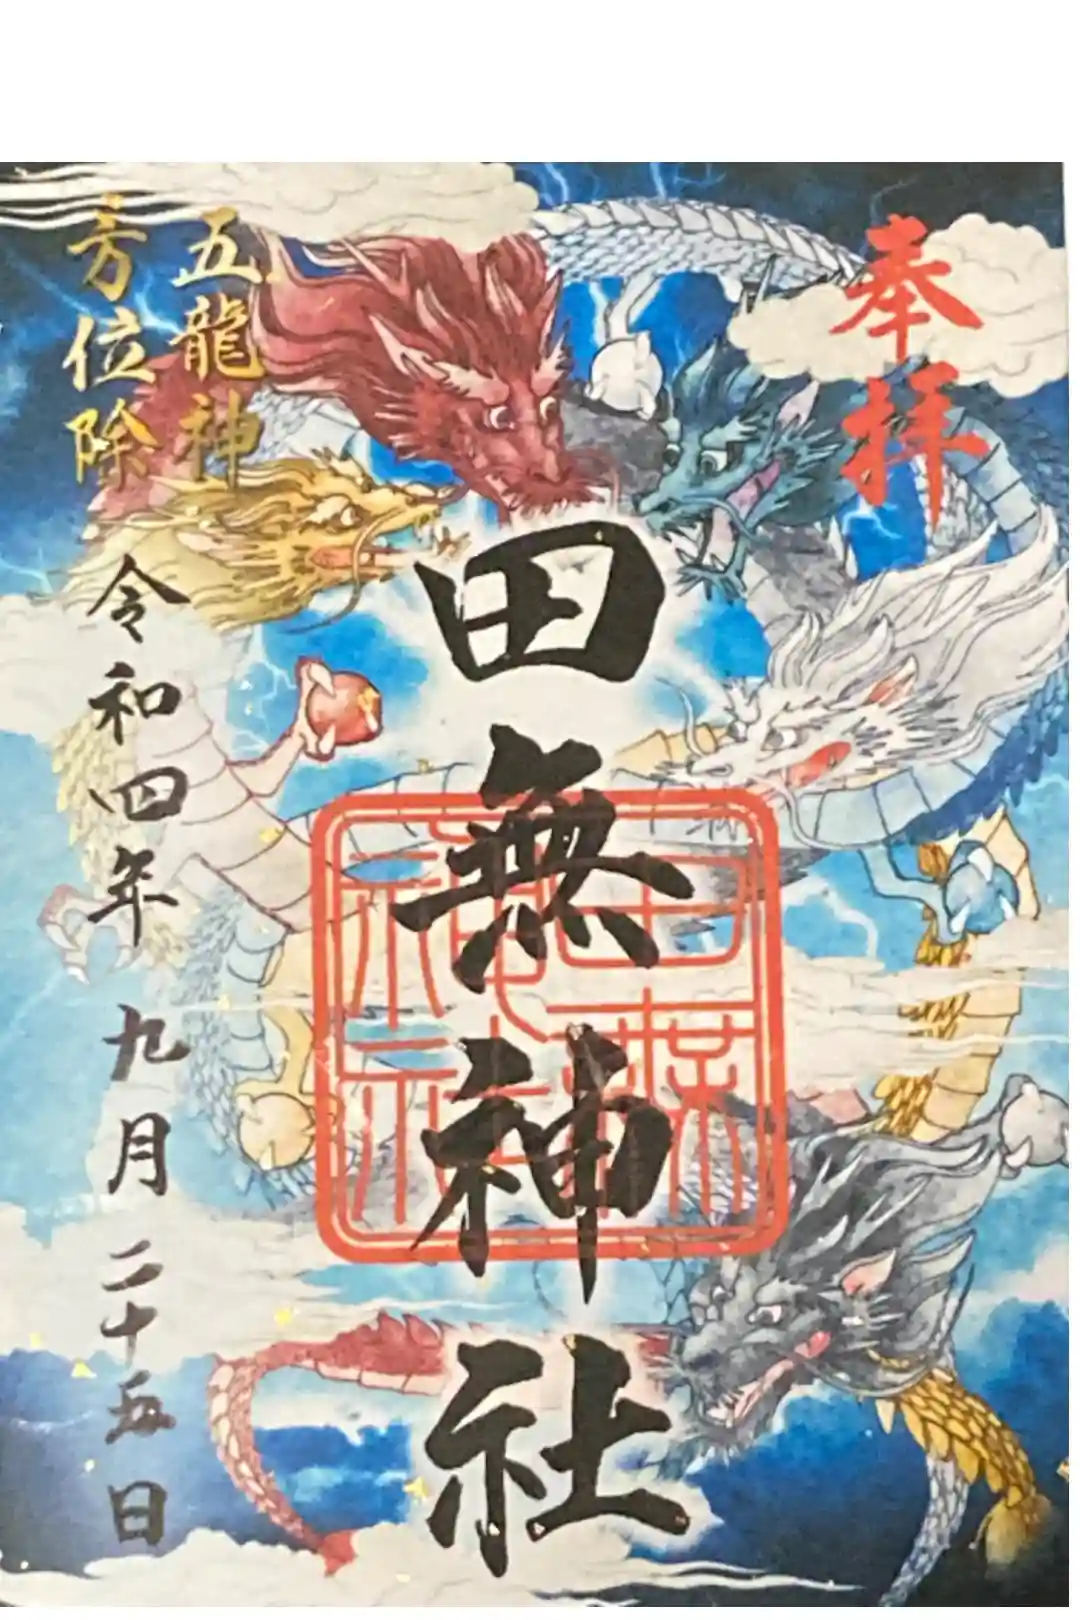 奉拝
田無神社
五龍神
方位除
令和四年九月二十五日